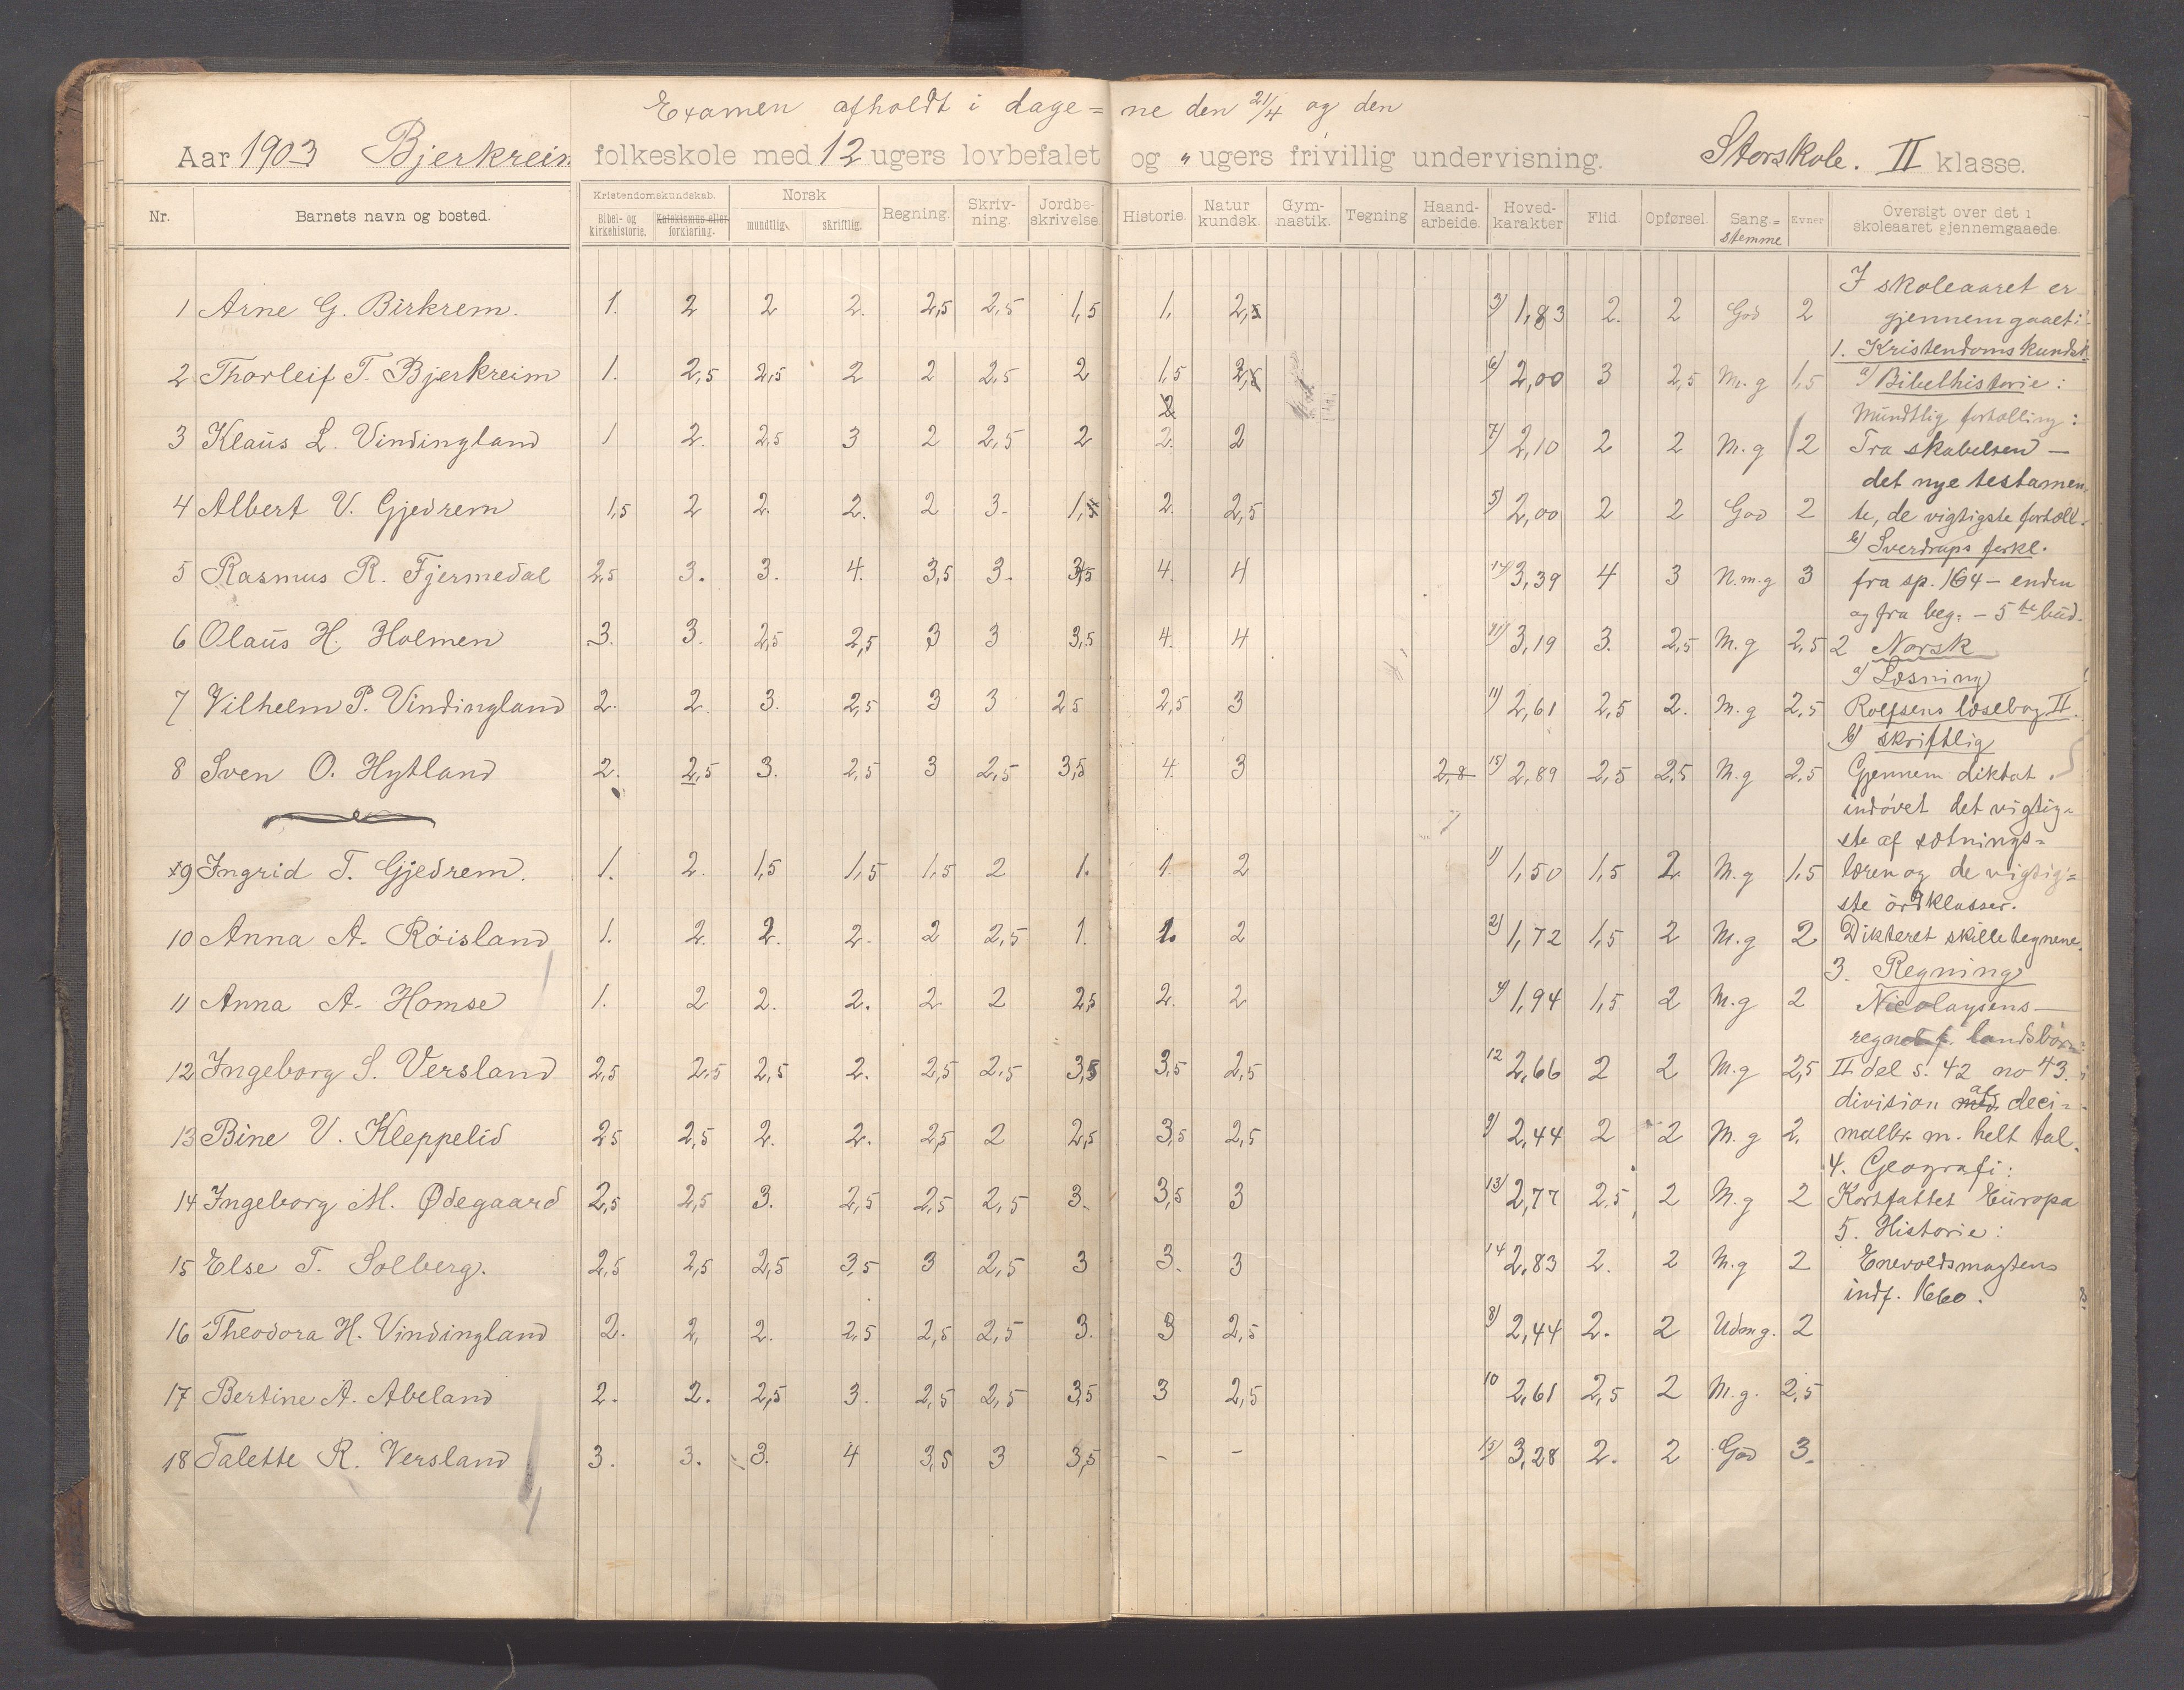 Examen afholdt i dage= ne den 21/4 og den
Aar 1903 Bjerkreim folkeskole med 12 ugers lovbefalet og " ugers frivillig undervisning. Storskole. II klasse.
Nr. Barnets navn og bosted. Kristendomskundskab. Bibel- og kirkehistorie. Katekismus eller forklaring. Norsk mundtlig. skriftlig. Regning. Skriv-ning. Jordbe-skrivelse. Historie. Natur kundsk. Gym-nastik. Tegning Haand-arbeide. Hoved-karakter Flid. Opførsel. Sang.= stemme Evner Oversigt over det i skoleaaret gjennemgaaede.
1 Arne G. Birkrem. 1. 2 2 2. 2,5 2,5 1,5 1, 2,5 3) 1,83 2. 2 God 2
2 Thorleif T. Bjerkreim 1. 2,5 2,5 2 2 2,5 2 1,5 2,5 6) 2,00 3 2,5 M.g 1,5
3 Klaus L. Vindingland 1 2. 2,5 3 2 2,5 2 2. 2 7) 2,10 2 2 M.g 2
4 Albert V. Gjedrem 1,5 2 2. 2. 2 3. 1,5 2. 2,5 5) 2,00 2 2 God 2
5 Rasmus R. Fjermedal 2,5 3. 3. 4. 3,5 3. 3,5 4. 4 17) 3,39 4 3 N.m.g 3
6 Olaus H. Holmen 3. 3. 2,5 2,5 3 3 3,5 4. 4 3,19 3. 2,5 M.g 2,5
7 Vilhelm P. Vindingland 2. 2. 3. 2,5 3 3 2 5 2,5 3 11) 2,61 2,5 2. M.g 2,5
8 Sven O. Hytland 2. 2,5 3. 2,5 3 2,5 3,5 4. 3 2,8 15) 2,89 2,5 2,5 M.g 2,5
9 Ingrid T. Gjedrem. 1. 2. 1,5 1,5 1,5 2 1. 1. 2 1) 1,50 1,5 2 M.g 1,5
10 Anna A. Röisland 1. 2. 2. 2. 2 2,5 1. 1. 2 2) 1,72 1,5 2 M.g 2
11 Anna A. Homse 1. 2 2. 2. 2 2 2,5 2. 2 4) 1,94 1,5 2 M.g 2
12 Ingeborg S. Versland 2,5 2,5 2,5 2. 2,5 2,5 3,5 3,5 2,5 12 2,66 2 2 M.g 2,5
13 Bine V. Kleppelid 2 5 2,5 2. 2. 2,5 2 2,5 3,5 2,5 9) 2,44 2 2 M.g 2.
14 Ingeborg M. Ødegaard 2,5 2,5 3. 2,5 2,5 2,5 3. 3,5 3 13) 2,77 2,5 2 M.g 2
15 Else T. Solberg. 2,5 2,5 2,5 3,5 3 2,5 3 3. 3 14 2,83 2. 2 M.g 2
16 Theodora H. Vindingland 2. 2, 2. 2,5 2,5 2,5 3. 3 2,5 8) 2,44 2. 2 Udm g. 2
17 Bertine A. Abeland 2. 2. 2,5 3. 2,5 2,5 3,5 3 2,5 10 2,61 2,5 2 M.g. 2,5
18 Talette R. Versland 3. 3. 3. 4 3,5 3 3,5 - - 15) 3,28 2. 2 God 3.
I skoleaaret er
gjennemgaaet:
1. Kristendomskundsk
a) Bibelhistorie:
Mundtlig fortælling:
Fra skabelsen —
det nye testamen-
te, de vigtigste fortæll.
b) Sverdrups forkl.
fra sp. 164 – enden
og fra beg. – 5te bud.
2 Norsk
a) Læsning
Rolfsens læsebog II.
b) skriftlig
Gjennem diktat
indövet det vigtig-
ste af sætnings=
læren og de vigtig=
ste ordklasser.
Dikteret skilletegnene.
3. Regning
Nicolaysens —
regneb f. landsbörn
II del s. 42 no 43.
division med af deci-
malbr. m. helt tal.
4. Geografi:
Kortfattet Europa
5. Historie:
Enevoldsmagtens
indf. 1660.